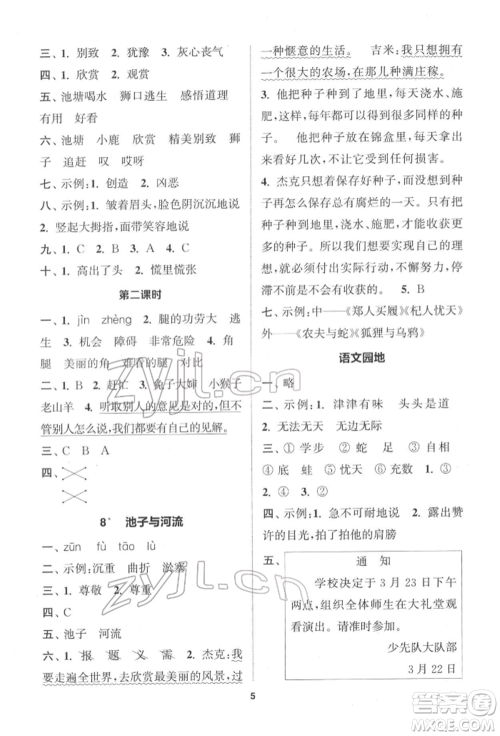 三、1. 别致　2. 犹豫　3. 灰心丧气
四、1. 欣赏　2. 观赏
五、池塘喝水　狮口逃生　感悟道理
有用　好看
六、池塘　小鹿　欣赏　精美别致　狮
子　追赶　叹　(1)　(3)
七、示例：1. 创造　2. 凶恶
八、示例：1. 皱着眉头，脸色阴沉沉地说
2. 竖起大拇指，面带笑容地说
九、1. C　2. B　3. A
十、1. 高出了头　2. 慌里慌张
第二课时
一、1. jìn　zhèng　2. 腿的功劳大　逃
生　3. 机会　障碍　非常危险　4. 美丽的
角　美丽的角　难看的腿　对比
二、1. B　2. 赶忙　3. 兔子大婶　小猴子
老山羊　4. 听取别人的意见是对的，但不
管别人怎么说，我们都要有自己的见解。
三、C　B　A
四、
8*　池子与河流
一、zūn　fù　tāo　lù
二、示例：沉重　曲折　淤塞
三、1. 尊敬　2. 尊重　3. 尊敬
四、C
五、池子　河流
六、1. 报　题　义　需　2. 杰克：我
要走遍全世界，去欣赏最美丽的风景，过
一种惬意的生活。　吉米：我只想拥有
一个很大的农场，在那儿种满庄稼。
3. 他把种子种到了地里，每天浇水、施
肥，每年都可以收获很多种子。　他把
种子放在锦盒里，每天除了拿出来
好看几次，不打开它，不浇水，不施肥。
4. 杰克只想着保存好种子，但是种
子再怎么保存总有腐烂的一天；吉米把
种子种到地里，浇水、施肥，才能收获更
多的种子。　示例：我知道了，我们应该
付出实际行动，不断地努力，不
停滞不前是不会有收获的。　5. B
七、示例：中——《郑人买履》《杞人忧天》
外——《农夫与蛇》《狐狸与乌鸦》
语文园地
一、略
二、示例：1. 津津有味　头头是道
2. 无法无天　无边无际
三、1. ①学步　②蛇　足　③相
④底　蛙　⑤忧天　⑥充数　2. ④
四、示例：1. 急不可耐地说　2. 露出赞
许的目光，拍了拍他的肩膀
五、
通　知
学校决定于 3 月 23 日下午
两点，组织全体师生在大礼堂观
看演出。请准时参加。
少先队大队部
3 月 22 日
5